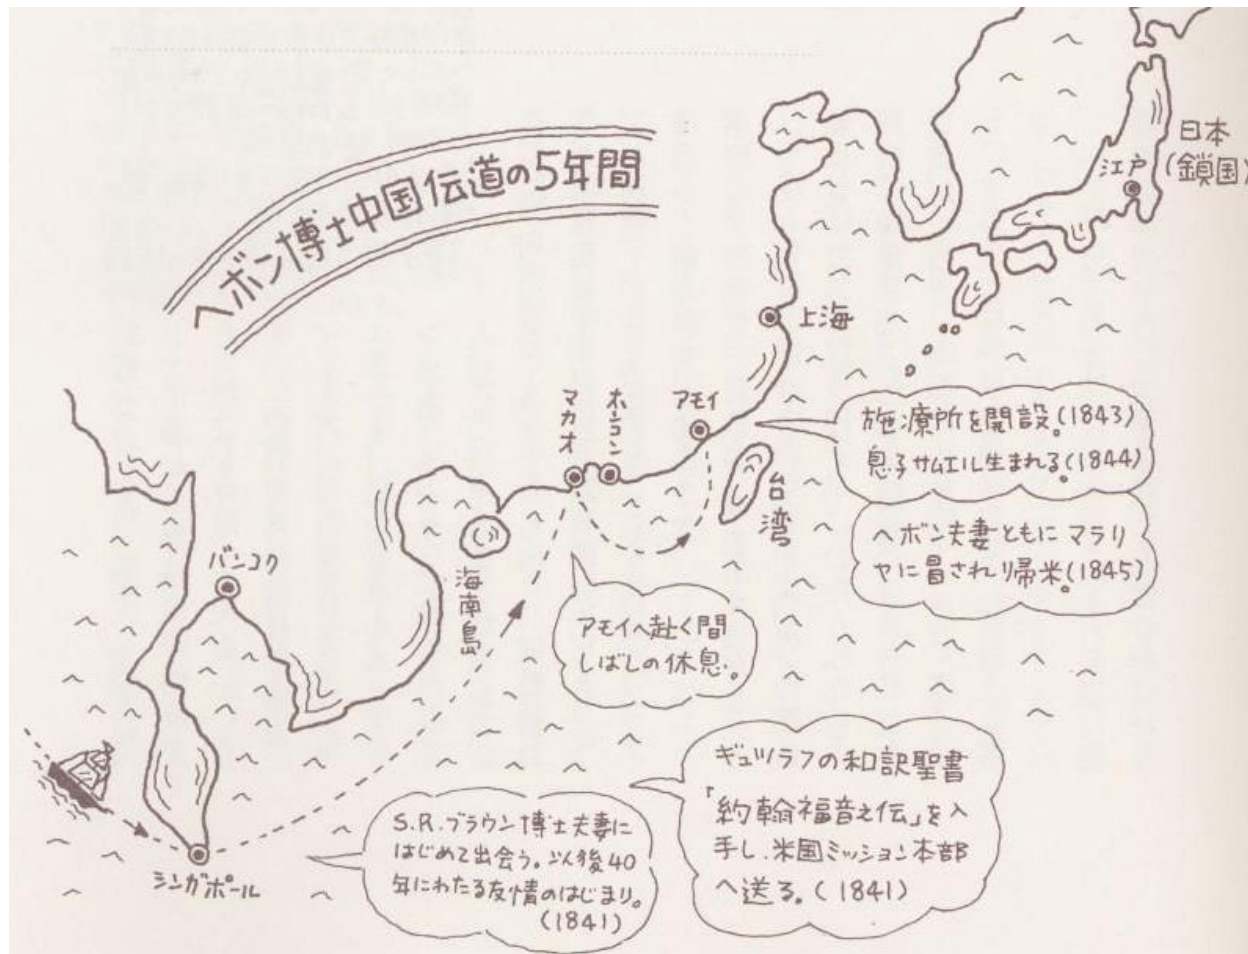 ヘボン博士中国伝道の5年間
日本
(鎖国)
江戸
上海
アモイ
ホンコン
マカオ
台湾
海南島
バンコク
シンガポール
施療所を開設。(1843)
息子サムエル生まれる。(1844)
ヘボン夫妻ともにマラリ
ヤに冒され帰米。(1845)
アモイへ赴く間
しばしの休息。
ギュツラフの和訳聖書
「約翰福音之伝」を入
手し、米国ミッション本部
へ送る。(1841)
S.R.ブラウン博士夫妻に
はじめて出会う。以後40
年にわたる友情のはじまり。
(1841)